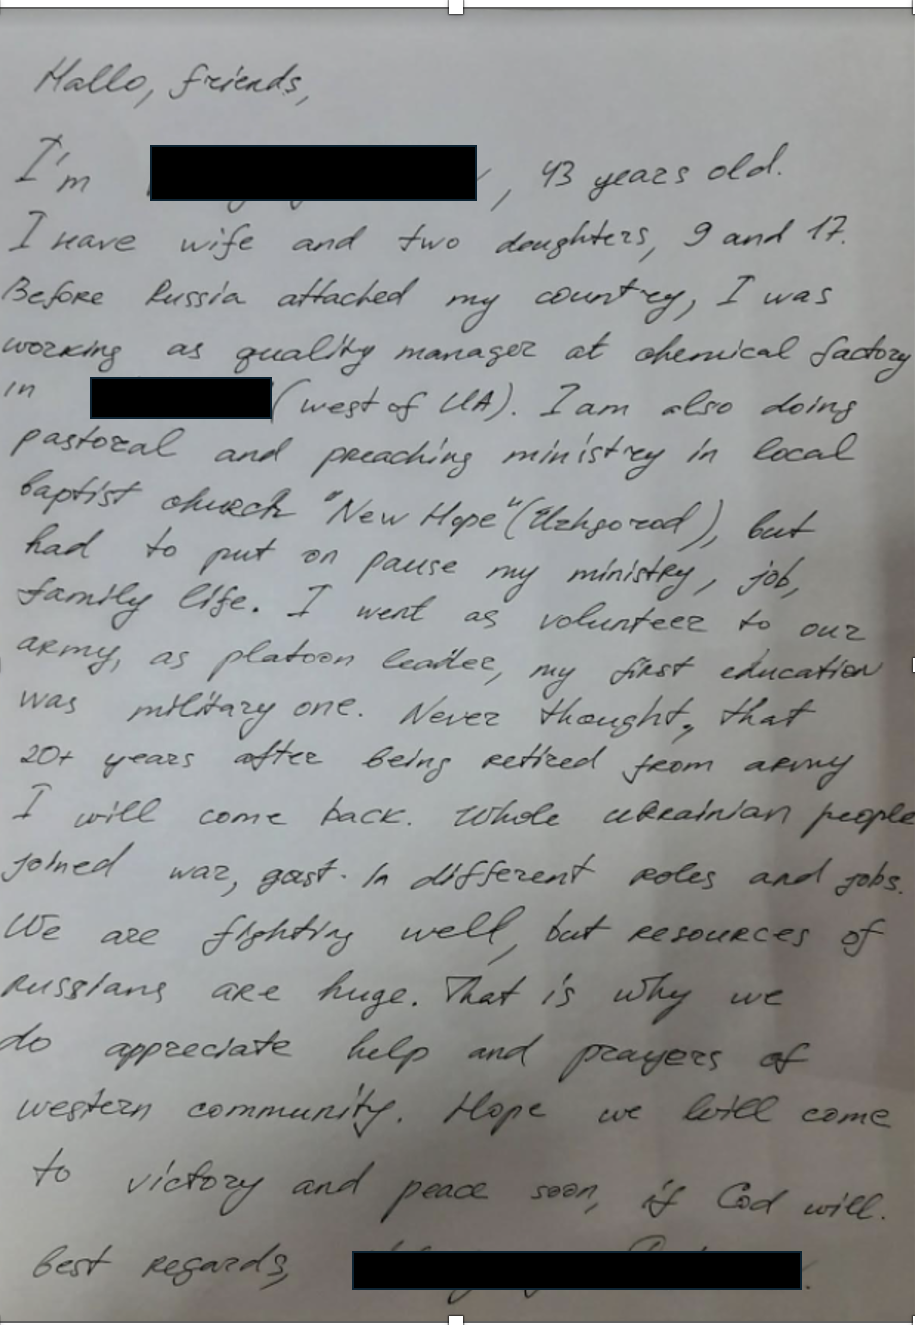 Hallo, friends,
I'm , 43 years old.
I have wife and two doughters, 9 and 17.
Before Russia attached my country, I was
working as quality manager at chemical factory
in (west of UA). I am also doing
pastoral and preaching ministry in local
baptist church "New Hope" (Uzhgorod), but
had to put on pause my ministry, job,
family life. I went as volunteer to our
army, as platoon leader, my first education
was military one. Never thought, that
20+ years after being retired from army
I will come back. Whole ukrainian people
joined war, just. In different roles and jobs.
We are fighting well, but resources of
russians are huge. That is why we
do appreciate help and prayers of
western community. Hope we will come
to victory and peace soon, if God will.
Best regards, .